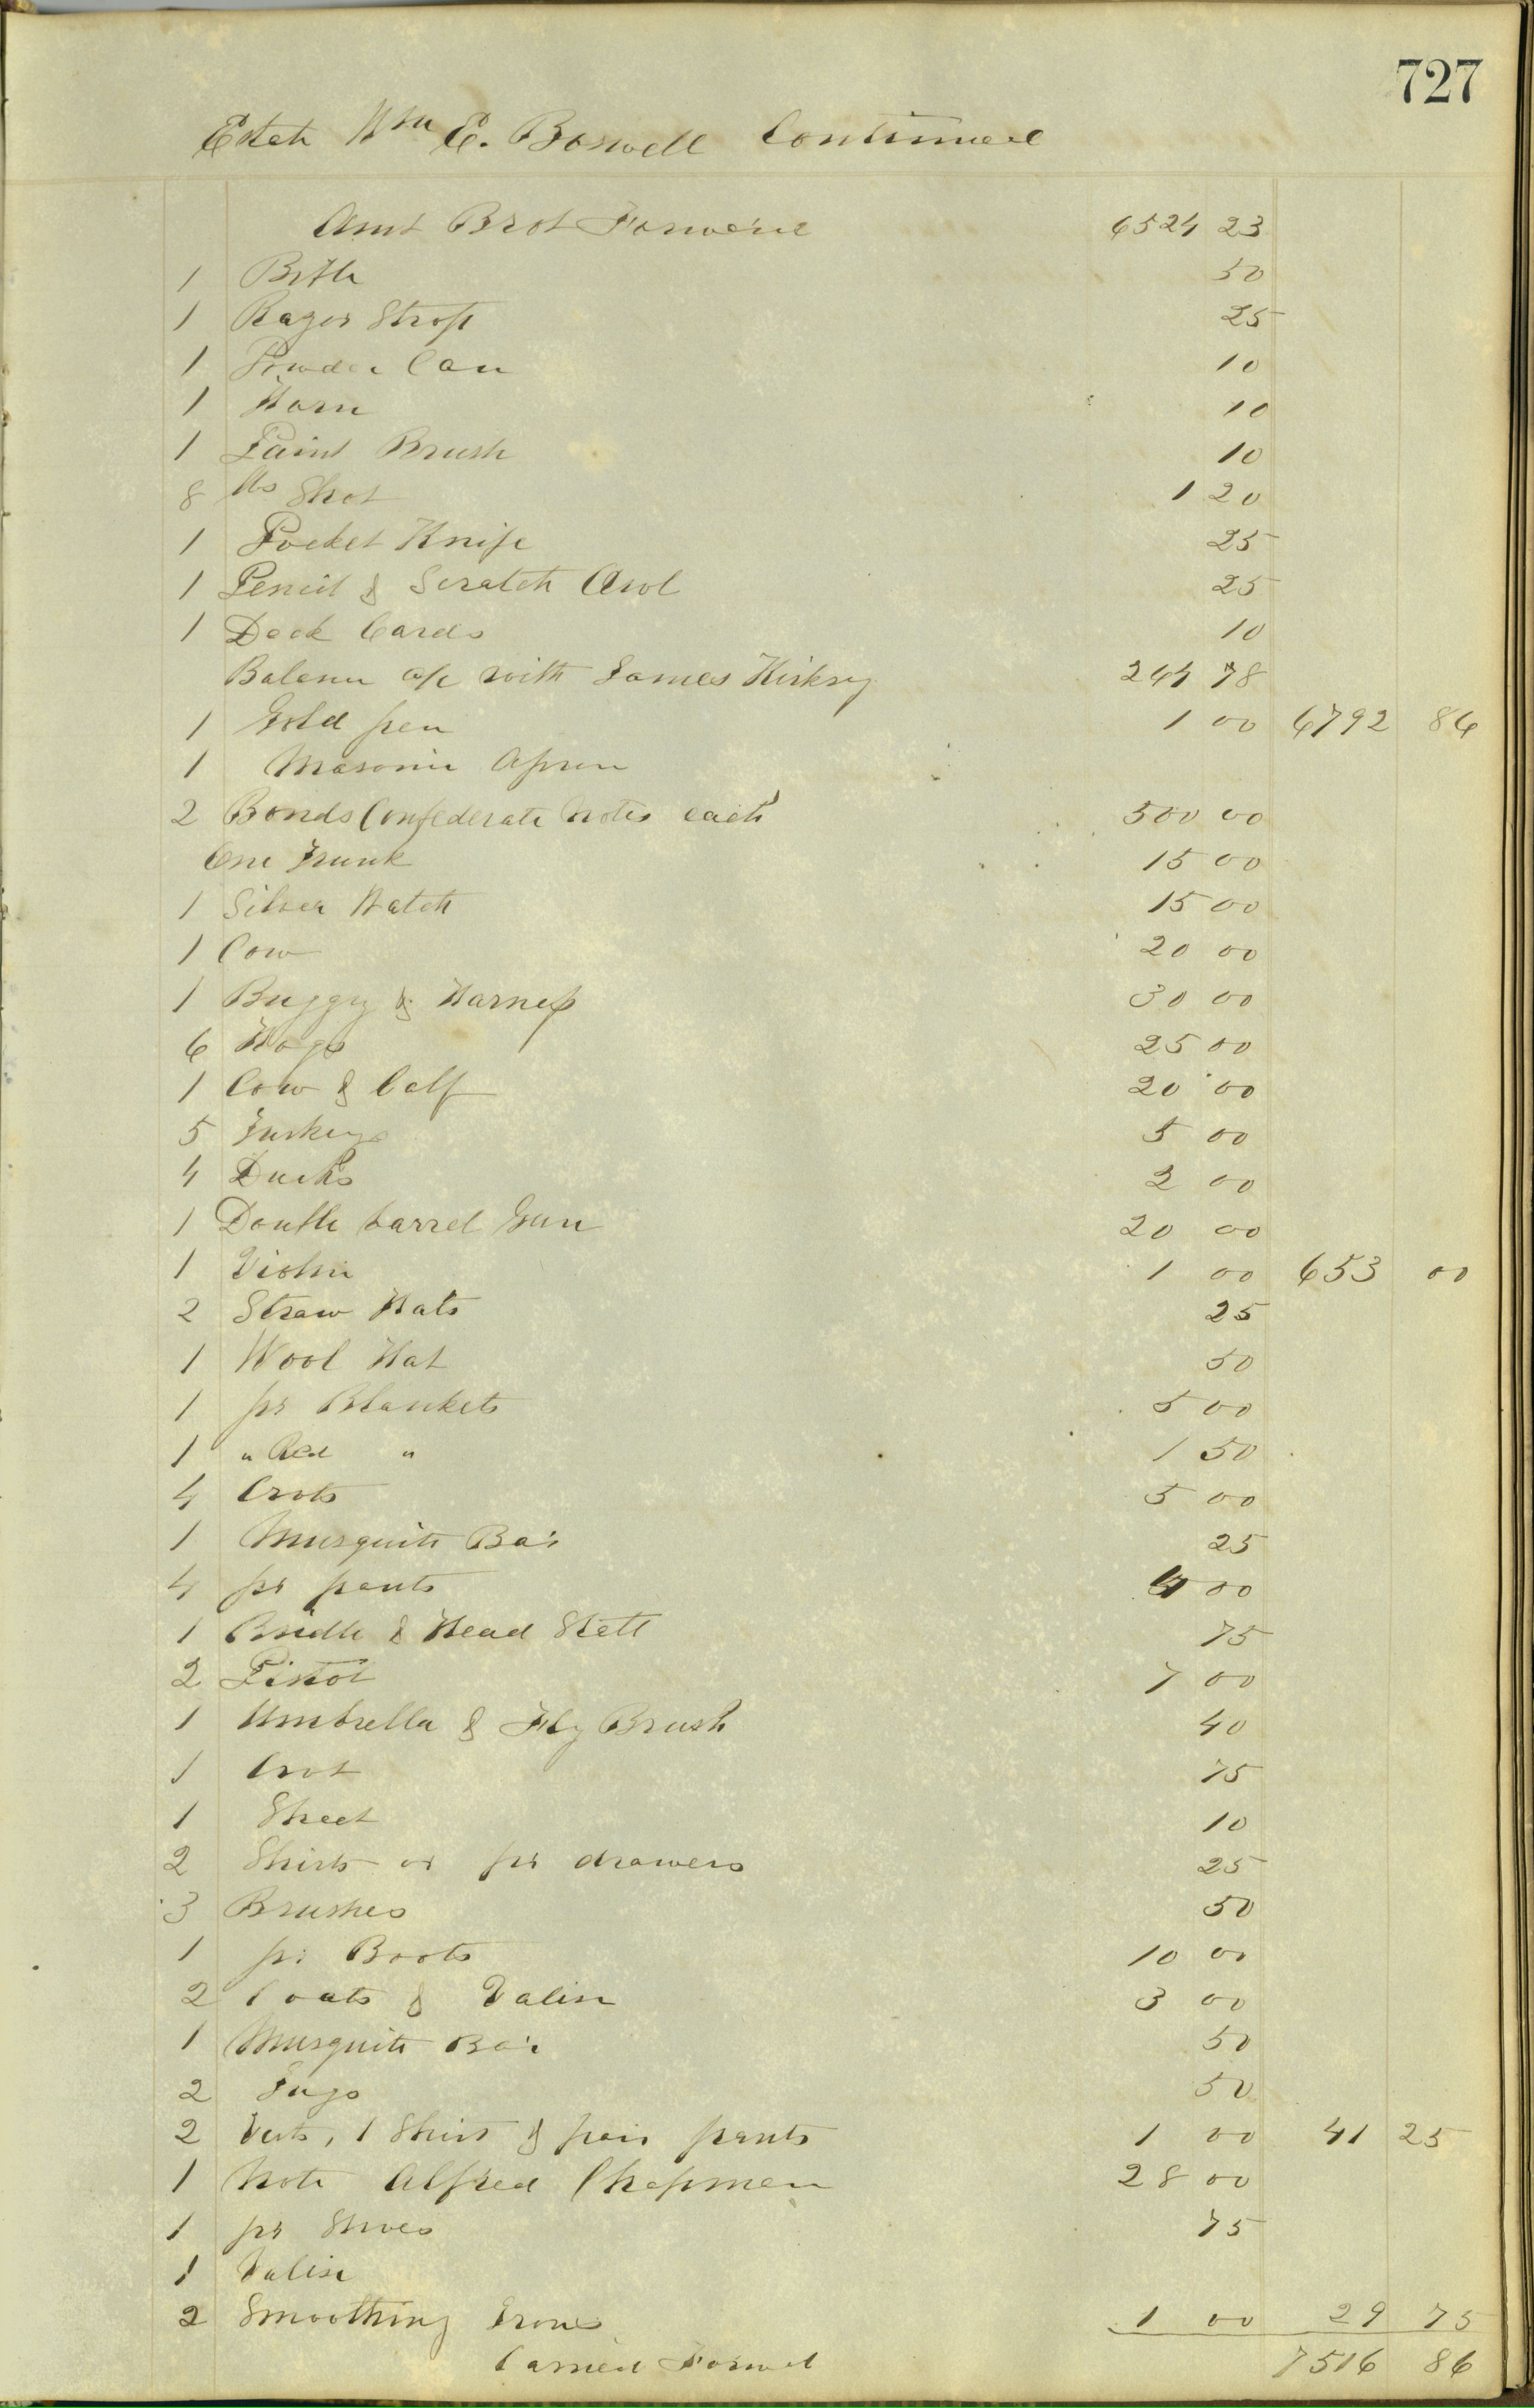 727
Estate Wm E. Boswell Continued
Amt Brot Forward 6524 23
1 Bottle 50
1 Razor Strop 25
1 Powder Can 10
1 Horn 10
1 Paint Brush 10
8 lbs Shot 1 20
1 Pocket Knife 25
1 Pencil & Scratch Awl 25
1 Deck Cards 10
Balance a/c with James Kirksey 244 78
1 Gold pen 1 00 6792 86
1 Masonic Apron
2 Bonds Confederate Notes each 500 00
One Trunk 15 00
1 Silver Watch 15 00
1 Cow 20 00
1 Buggy & Harness 30 00
6 Hogs 25 00
1 Cow & Calf 20 00
5 Turkeys 5 00
4 Ducks 2 00
1 Double barrel Gun 20 00
1 Violin 1 00 653 00
2 Straw Hats 25
1 Wool Hat 50
1 pr Blankets 5 00
1 " Red " 1 50
4 Crots 5 00
1 Musquito Bar 25
4 pr pants 4 00
1 Bridle & Head Stell 75
2 Pistol 7 00
1 Umbrella & Fly Brush 40
1 Crot 75
1 Sheet 10
2 Shirts or pr drawers 25
3 Brushes 50
1 pr Boots 10 00
2 Coats & Valise 3 00
1 Musquito Bar 50
2 Jugs 50
2 Vests, 1 Shirt & pair pants 1 00 41 25
1 Note Alfred Chapman 28 00
1 pr Shoes 75
1 Valise
2 Smoothing Irons 1 00 29 75
Carried Forwd 7516 86